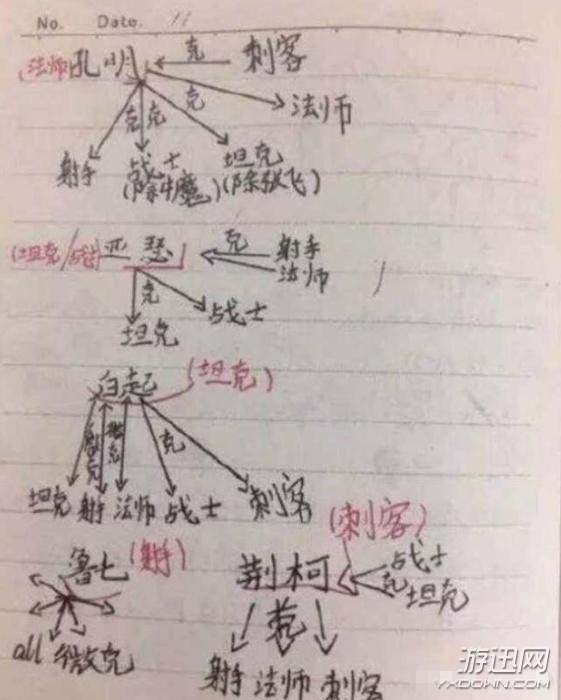 No. Date. 11
克 刺客
(法师)孔明
克 法师
克克
射手 战士 坦克
(除牛魔) (除张飞)
(坦克/战士)亚瑟 克 射手
法师
克
坦克 战士
白起 (坦克)
克
坦克 射手 法师 战士 刺客
鲁七(射手)
all 微克
(刺客)
荆柯 克 战士
坦克
克
射手 法师 刺客
游迅网
YXDOWN.COM